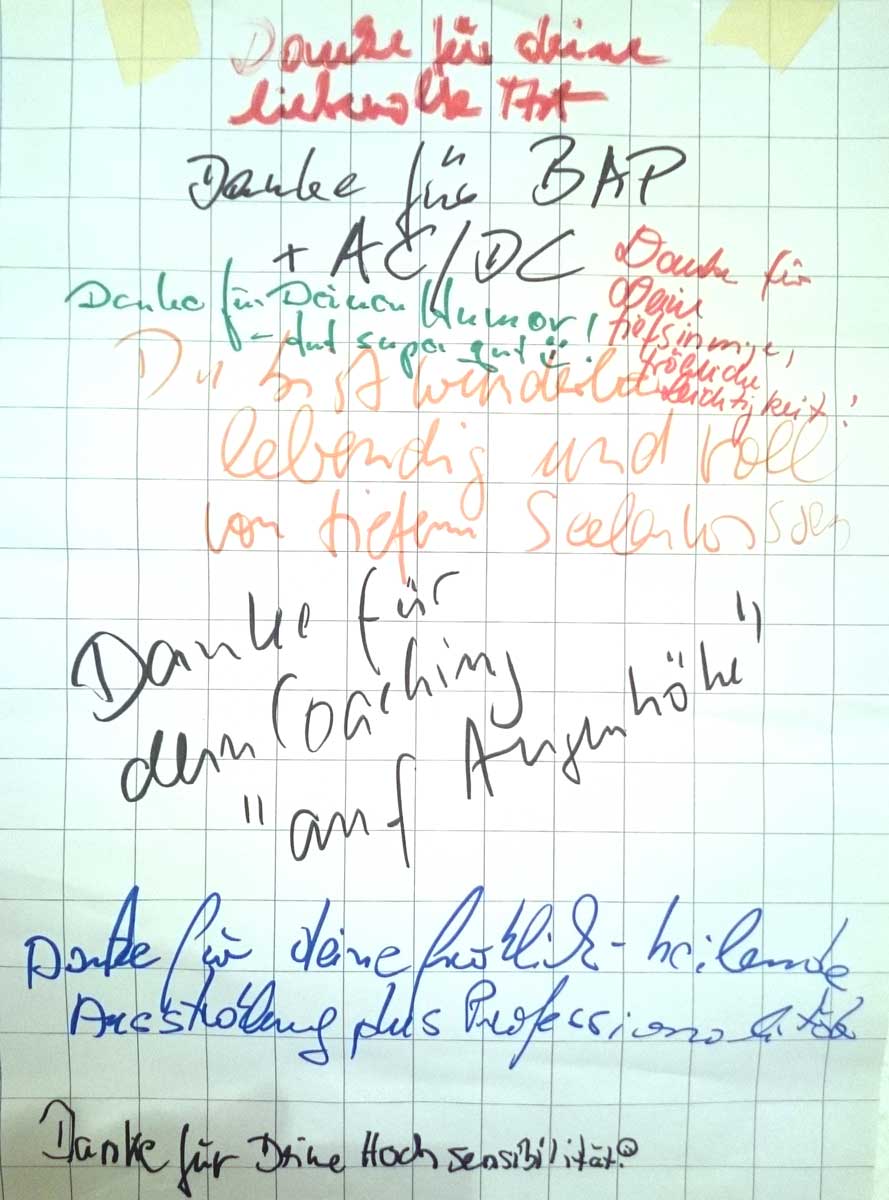 Danke für deine
liebevolle Art
Danke für BAP
+ AC/DC
Danke für Deinen Humor!
– tut super gut ü.
Danke für
Deine
tiefsinnige,
fröhliche
Leichtigkeit!
Du bist wunderbar
lebendig und voll
von tiefem Seelenwissen
Danke für
dein Coaching
"auf Augenhöhe"
Danke für deine fröhlich-heilende
Ausstrahlung plus Professionalität
Danke für Deine Hochsensibilität!